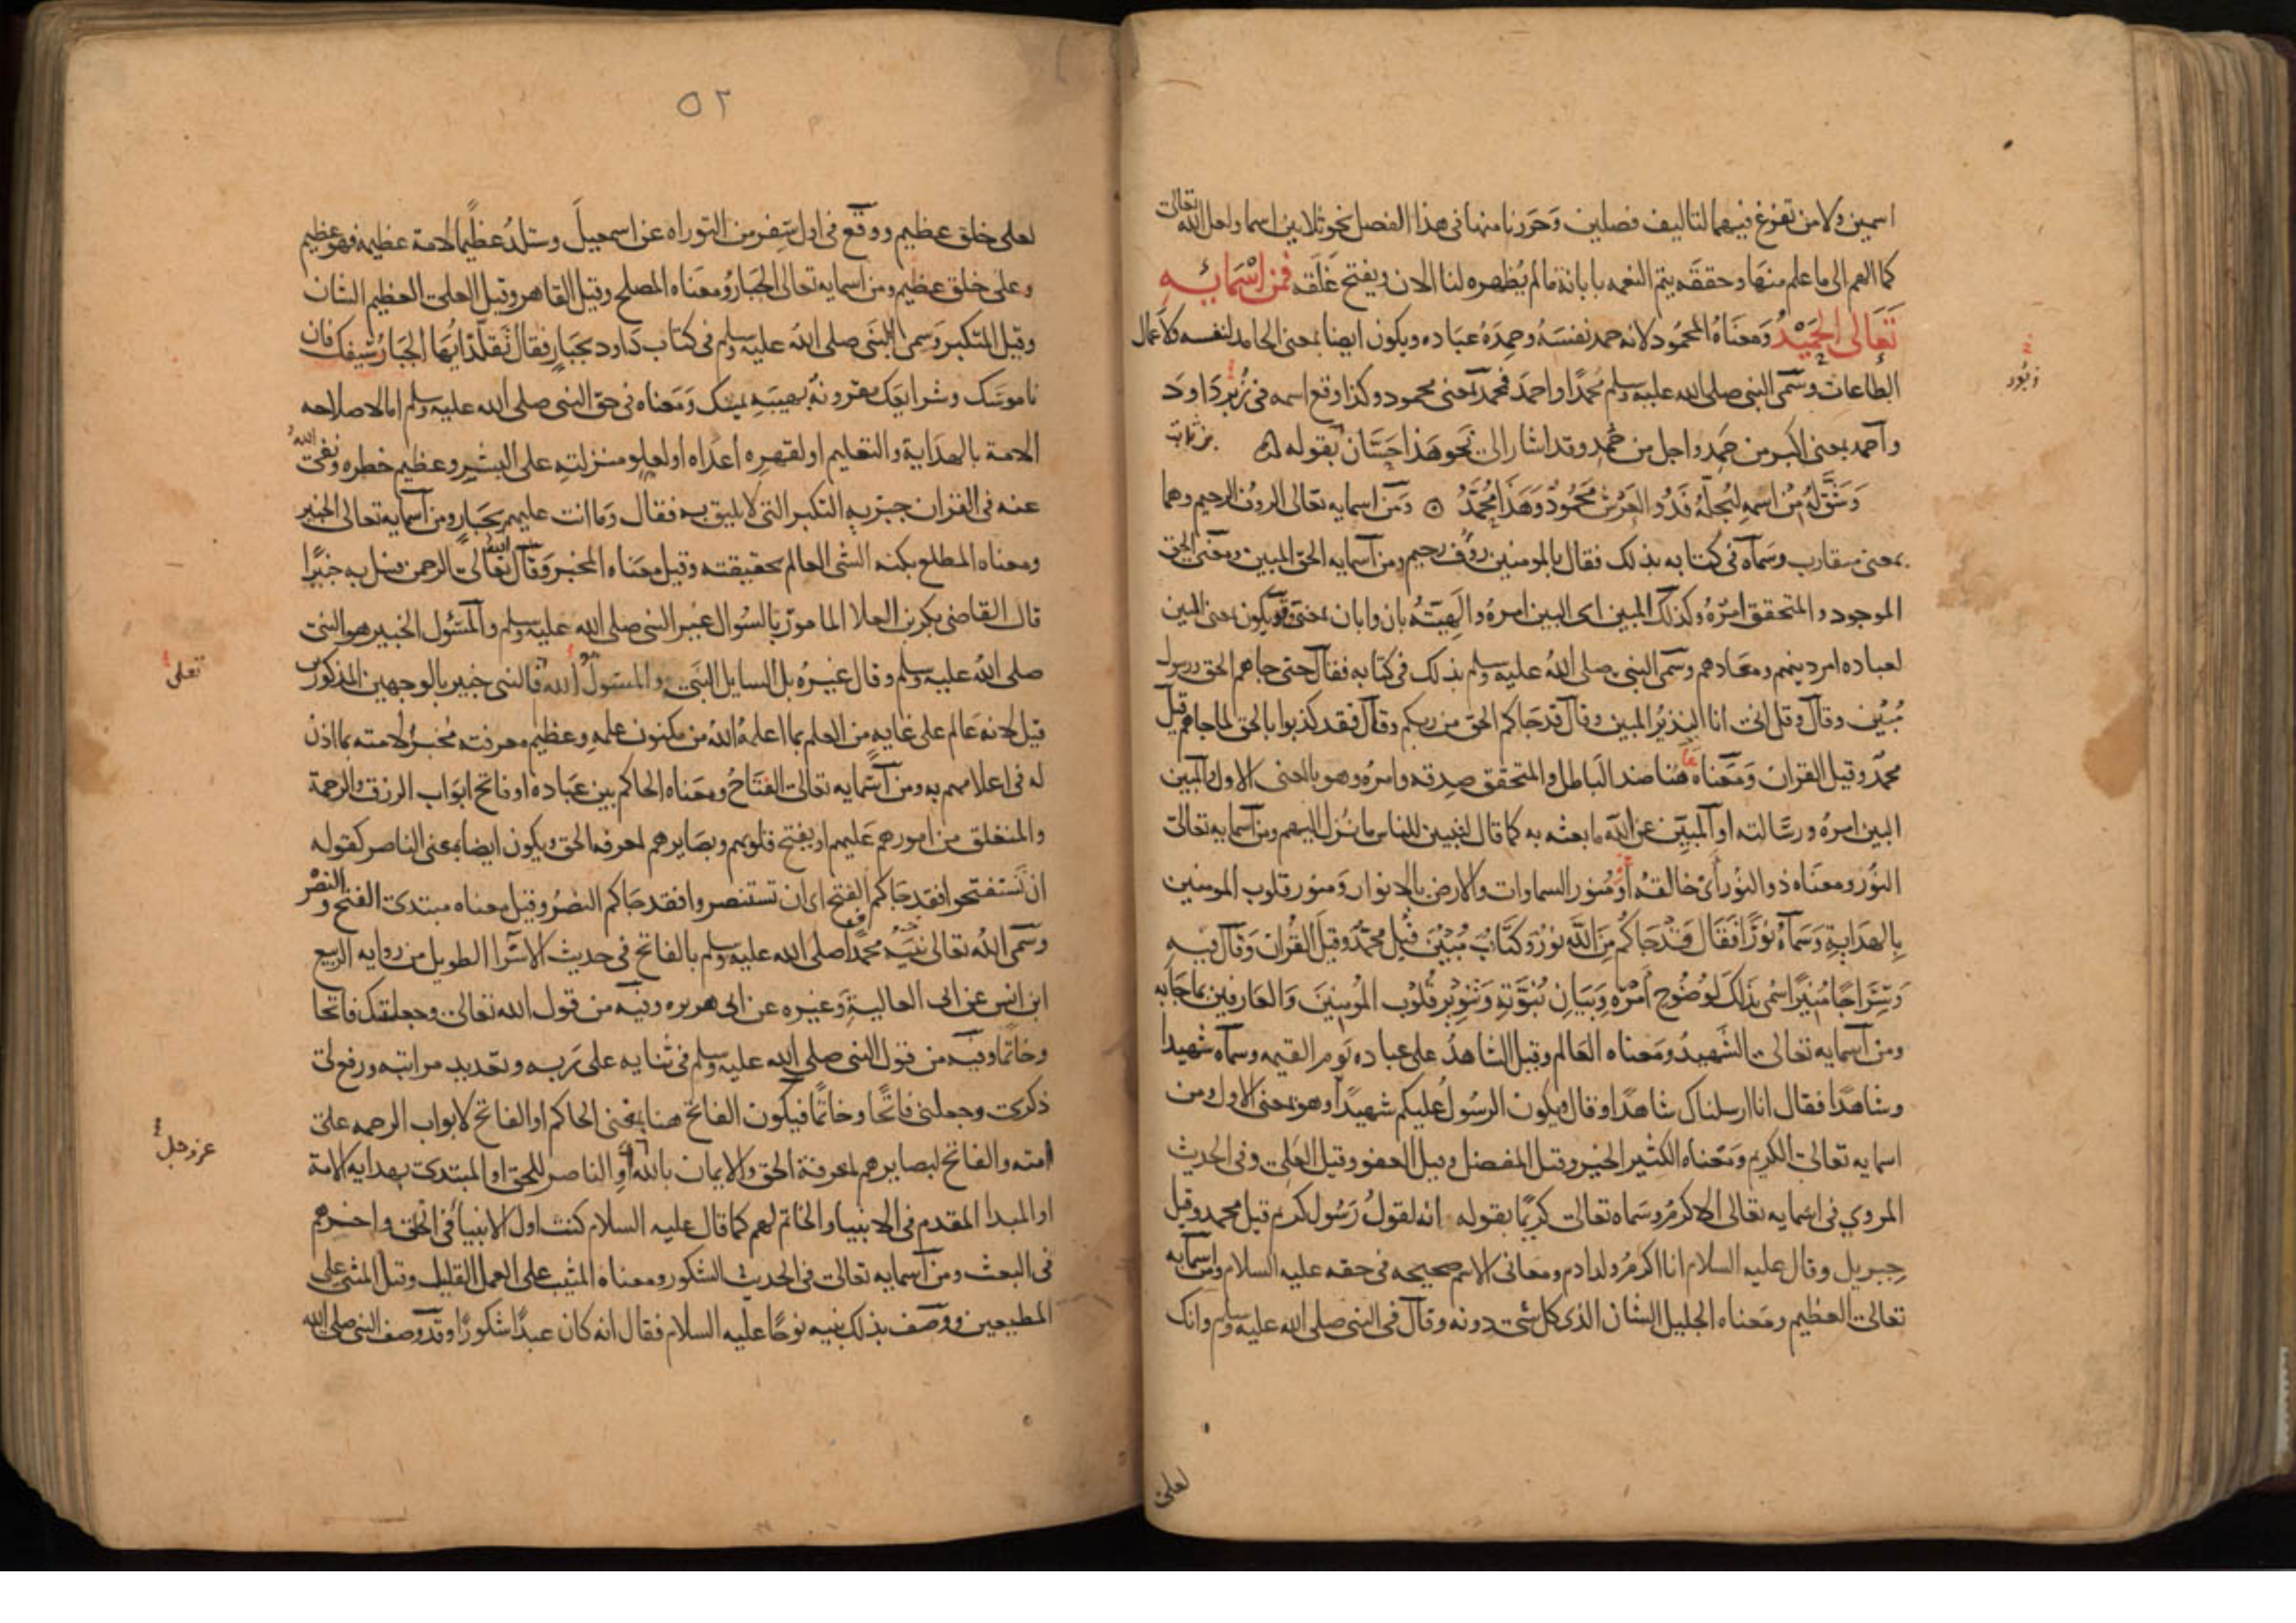 اسمين ولا من تفرغ فيهما لتاليف فصلين وحررنا منها فى هذا الفصل نحو ثلاثين اسما ولعل الله تعالى
كما الهم الى ما علم منها وحققه يتم النعمه بابانة ما لم يظهره لنا الان ويفتح غلقه فمن اسمائه
تعالى الحميد ومعناه المحمود لانه حمد نفسه وحمده عباده ويكون ايضا بمعنى الحامد لنفسه ولاعمال
الطاعات وسمى النبى صلى الله عليه وسلم محمدا واحمد فمحمد بمعنى محمود وكذا وقع اسمه فى زبر داود
زبور
واحمد بمعنى اكبر من حمد واجل من حمد وقد اشار الى نحو هذا حسان بقوله
وشق له من اسمه ليجله فذو العرش محمود وهذا محمد ومن اسمايه تعالى الروف الرحيم وهما
بمعنى متقارب وسماه فى كتابه بذلك فقال بالمومنين روف رحيم ومن اسمايه الحق المبين ومعنى الحق
الموجود والمتحقق امره وكذلك المبين اى البين امره والهيته بان وابان بمعنى ويكون بمعنى المبين
لعباده امر دينهم ومعادهم وسمى النبى صلى الله عليه وسلم بذلك فى كتابه فقال حتى جاهم الحق ورسول
مبين وقال وقل انى انا النذير المبين وقال قد جاكم الحق من ربكم وقال فقد كذبوا بالحق لما جاهم قيل
محمد وقيل القران ومعناه هنا ضد الباطل والمتحقق صدقه وامره وهو بالمعنى الاول والمبين
البين امره ورسالته او المبين عن الله ما بعثه به كما قال لتبين للناس ما نزل اليهم ومن اسمايه تعالى
النور ومعناه ذو النور اى خالقه او منور السماوات والارض بالانوار ومنور قلوب المومنين
بالهداية وسماه نورا فقال قد جاكم من الله نور وكتاب مبين قيل محمد وقيل القران وقال فيه
وسراجا منيرا سمى بذلك لوضوح امره وبيان نبوته وتنوير قلوب المومنين والعارفين بما جا به
ومن اسمايه تعالى الشهيد ومعناه العالم وقيل الشاهد على عباده يوم القيمه وسماه شهيدا
وشاهدا فقال انا ارسلناك شاهدا وقال ويكون الرسول عليكم شهيدا وهو بمعنى الاول ومن
اسمايه تعالى الكريم ومعناه الكثير الخير وقيل المفضل وقيل العفو وقيل العلى وفى الحديث
المروي فى اسمايه تعالى الاكرم وسماه تعالى كريما بقوله انه لقول رسول كريم قيل محمد وقيل
جبريل وقال عليه السلام انا اكرم ولد ادم ومعانى الاسم صحيحه فى حقه عليه السلام ومن اسمايه
تعالى العظيم ومعناه الجليل الشان الذى كل شى دونه وقال فى النبى صلى الله عليه وسلم وانك
لعلى
٥٢
لعلى خلق عظيم ووقع فى اول سفر من التوراه عن اسمعيل وستلد عظيما لامة عظيمة فهو عظيم
وعلى خلق عظيم ومن اسمايه تعالى الجبار ومعناه المصلح وقيل القاهر وقيل العلى العظيم الشان
وقيل المتكبر وسمى النبى صلى الله عليه وسلم فى كتاب داود بجبار فقال تقلد ايها الجبار سيفك فان
ناموسك وشرايعك مقرونة بهيبة يمينك ومعناه فى حق النبى صلى الله عليه وسلم اما لاصلاحه
الامة بالهداية والتعليم او لقهره اعداه او لعلو منزلته على البشر وعظيم خطره ونفى الله
عنه فى القران جبرية التكبر التى لا يليق به فقال وما انت عليهم بجبار ومن اسمايه تعالى الخبير
ومعناه المطلع بكنه الشى العالم بحقيقته وقيل معناه المخبر وقال الله تعالى الرحمن فسل به خبيرا
قال القاضى بكر بن العلا المامور بالسوال غير النبى صلى الله عليه وسلم والمسئول الخبير هو النبى
صلى الله عليه وسلم وقال غيره بل السايل النبى والمسول الله فالنبى خبير بالوجهين المذكورين
تعالى
قيل لانه عالم على غاية من العلم بما اعلمه الله من مكنون علمه وعظيم معرفته مخبر لامته بما اذن
له فى اعلامهم به ومن اسمايه تعالى الفتاح ومعناه الحاكم بين عباده او فاتح ابواب الرزق والرحمة
والمنغلق من امورهم عليهم او يفتح قلوبهم وبصايرهم لمعرفة الحق ويكون ايضا بمعنى الناصر كقوله
ان تستفتحوا فقد جاكم الفتح اى ان تستنصروا فقد جاكم النصر وقيل معناه مبتدى الفتح والنصر
وسمى الله تعالى نبيه محمدا صلى الله عليه وسلم بالفاتح فى حديث الاسرا الطويل من روايه الربيع
ابن انس عن ابى العالية وغيره عن ابى هريره وفيه من قول الله تعالى وجعلتك فاتحا
وخاتما وفيه من قول النبى صلى الله عليه وسلم فى ثنايه على ربه وتعديد مراتبه ورفع لى
ذكرى وجعلنى فاتحا وخاتما فيكون الفاتح هنا بمعنى الحاكم او الفاتح لابواب الرحمه على
امته والفاتح لبصايرهم لمعرفة الحق والايمان بالله او الناصر للحق او المبتدى بهدايه الامة
عز وجل
او المبدا المقدم فى الانبيا والخاتم لهم كما قال عليه السلام كنت اول الانبيا فى الخلق واخرهم
فى البعث ومن اسمايه تعالى فى الحديث الشكور ومعناه المثيب على العمل القليل وقيل المثنى على
المطيعين ووصف بذلك نبيه نوحا عليه السلام فقال انه كان عبدا شكورا وقد وصف النبى صلى الله